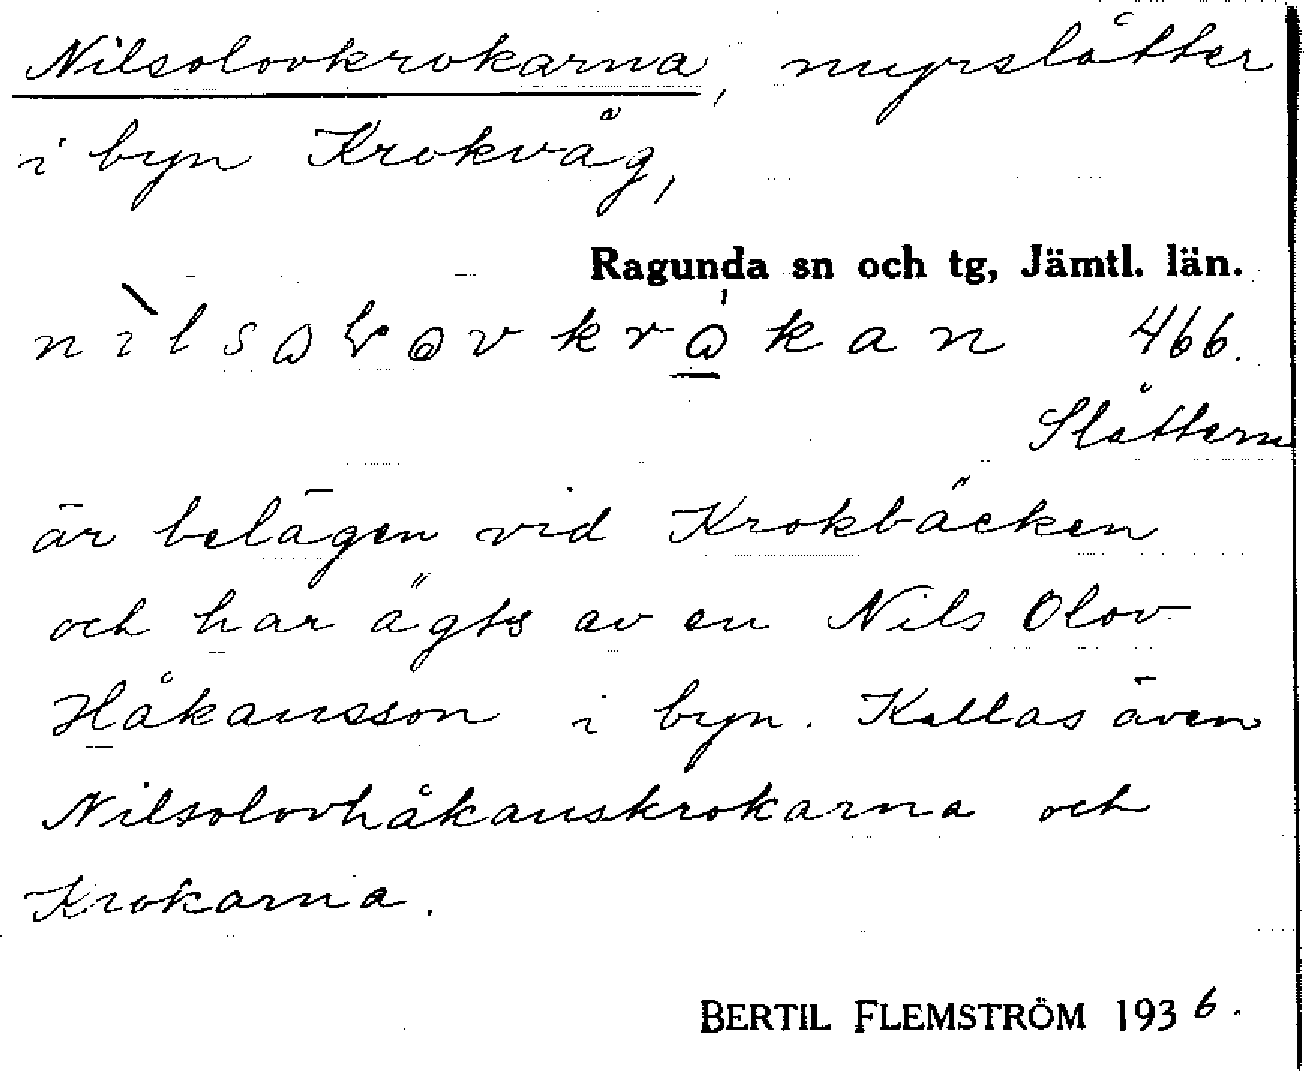 Nilsolovkrokarna, myrslåtter
i byn Krokvåg,
Ragunda sn och tg, Jämtl. län.
466.
Slåttern
är belägen vid Krokbäcken
och har ägts av en Nils Olov
Håkansson i byn. Kallas även
Nilsolovhåkanskrokarna och
Krokarna.
BERTIL FLEMSTRÖM 1936.